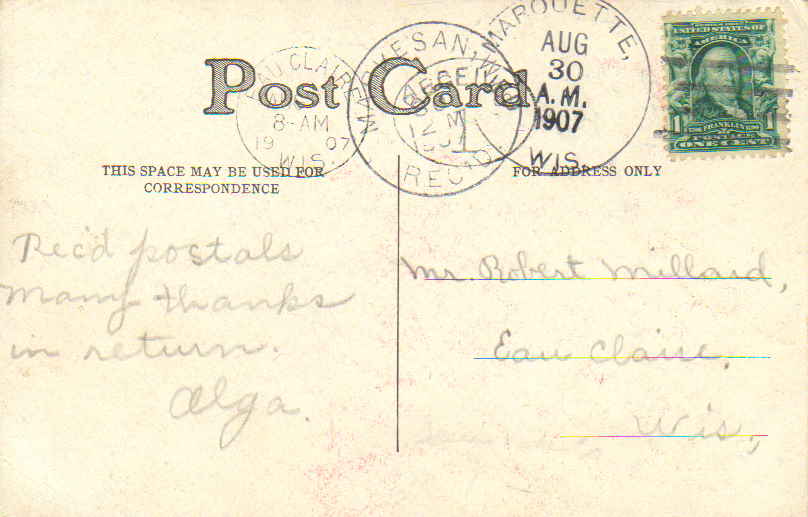 Post Card
EAU CLAIRE
8-AM
19 07
WIS.
MARQUESAN, WIS.
RECEIVED
12 M
REC'D.
MARQUETTE,
AUG
30
A.M.
1907
WIS.
UNITED STATES OF
AMERICA
FRANKLIN
1 POSTAGE 1
ONE CENT
THIS SPACE MAY BE USED FOR
CORRESPONDENCE
FOR ADDRESS ONLY
Rec'd postals
many thanks
in return.
Alga.
Mr. Robert Millard,
Eau Claire,
Wis,